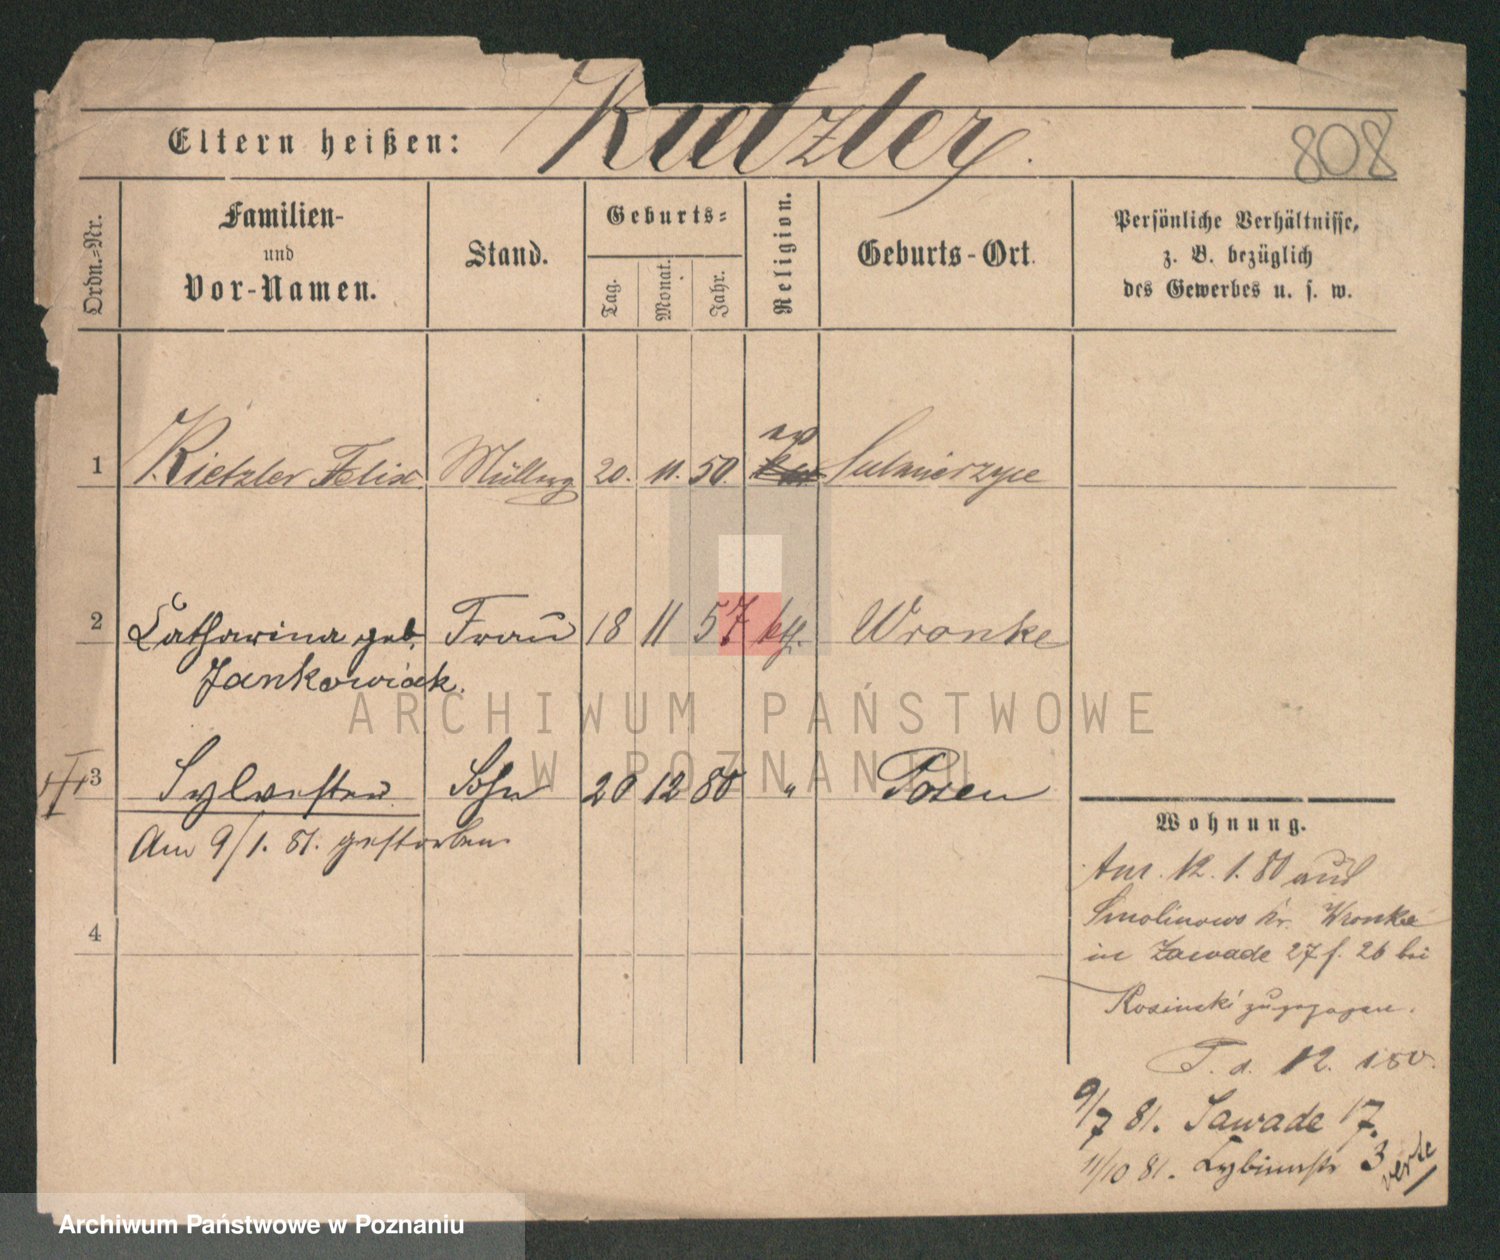 Eltern heißen: Kietzler. 808
Ordn.-Nr.
Familien-
und
Vor-Namen.
Stand.
Geburts-
Tag.
Monat.
Jahr.
Religion.
Geburts-Ort.
Persönliche Verhältnisse,
z. B. bezüglich
des Gewerbes u. s. w.
1 Kietzler Felix. 20. 11. 50. ev Sulmierzyce
2 Catharina geb. Frau 18 11 57 kth. Wronke
Jankowiak.
3 Sylvester Sohn 20 12 80 " Posen
Am 9/1. 81. gestorben
4
Wohnung.
12. 1. 80 aus
Smolinowo Kr. Wronke
in Zawade 27 f. 26 bei
Rosinski zugezogen.
P. d. 12. 1 80.
9/7 81. Zawade 17.
11/10 81. 3
verte
ARCHIWUM PAŃSTWOWE
W POZNANIU
Archiwum Państwowe w Poznaniu